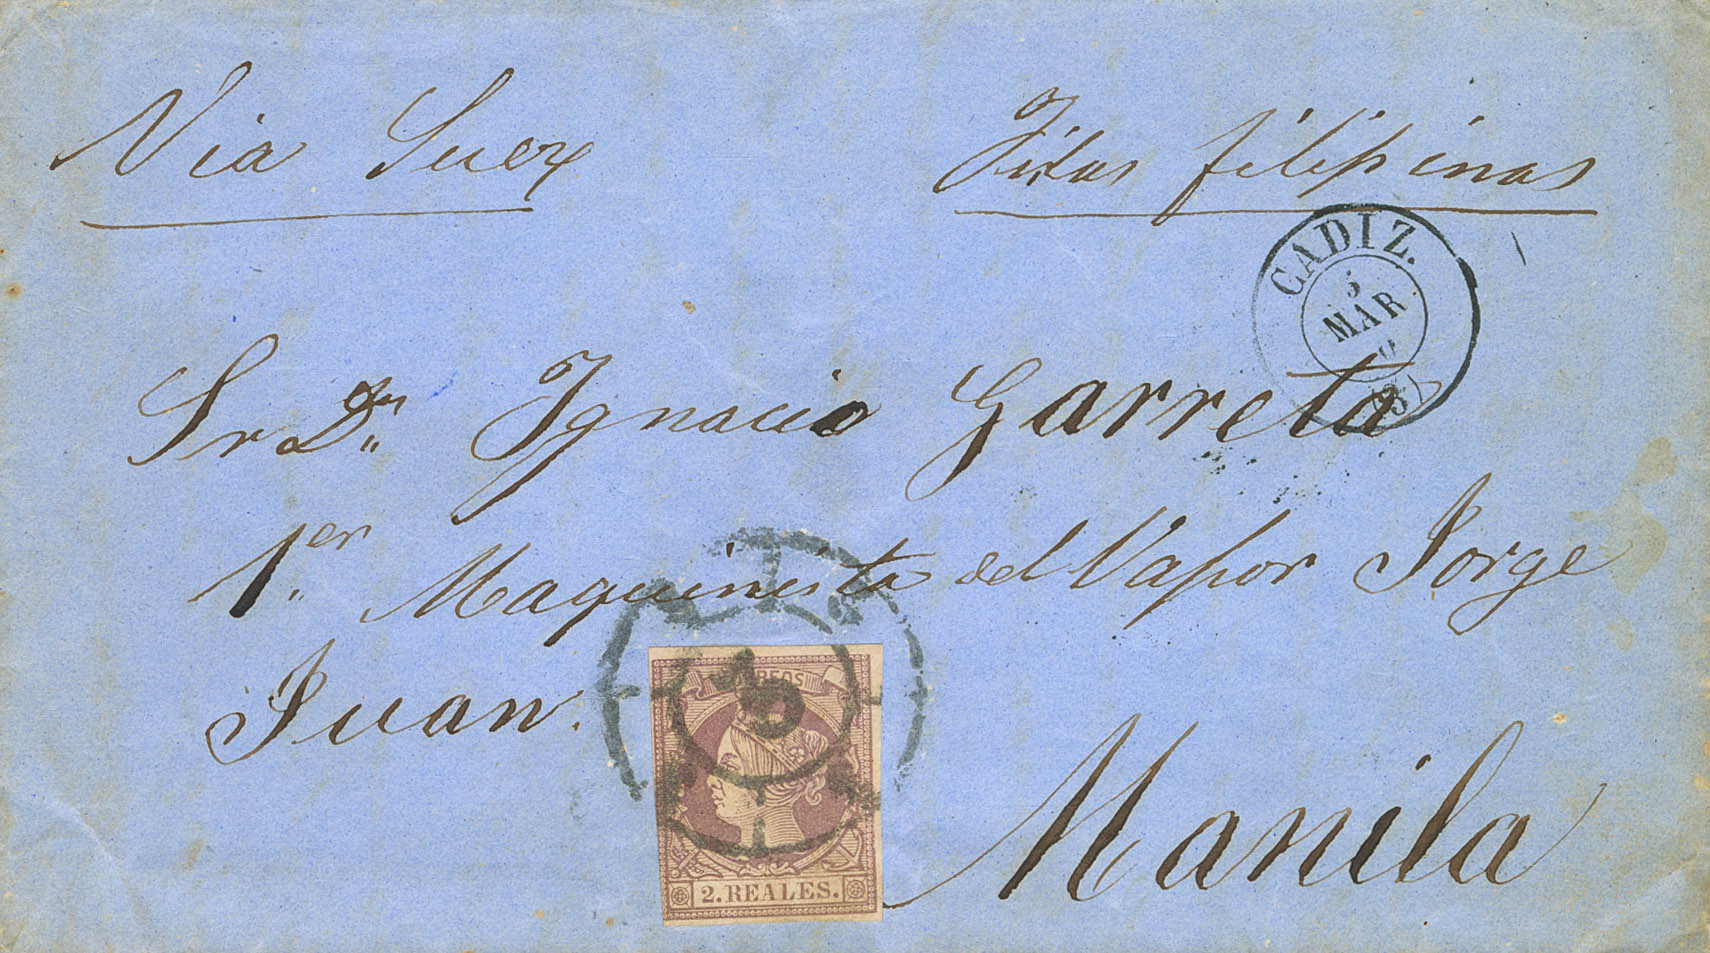 Via Suez
Yslas filipinas
CADIZ.
5
MAR
Sr Dn Ygnacio Garreta
1.er Maquinista del Vapor Jorge
Juan.
CORREOS
2. REALES.
Manila